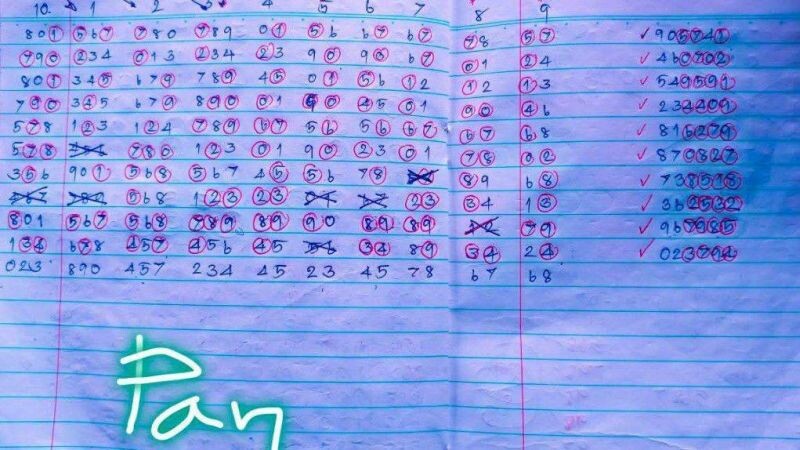 10. 1 2 3 4 5 6 7 8 9
801 567 780 789 01 56 67 67 78 57 ✓ 905741
790 234 013 234 23 90 90 67 01 24 ✓ 460702
801 345 679 789 45 01 56 12 12 13 ✓ 549591
790 345 679 890 01 90 45 01 90 46 ✓ 234409
578 123 124 789 67 56 56 67 67 68 ✓ 816279
578 780 123 01 90 23 01 78 02 ✓ 870827
356 901 568 567 45 56 78 89 68 ✓ 738578
568 123 23 23 34 13 ✓ 362532
801 567 568 789 89 90 89 89 79 ✓ 967985
134 678 457 456 45 34 89 34 24 ✓ 023794
023 890 457 234 45 23 45 78 67 68
Pan